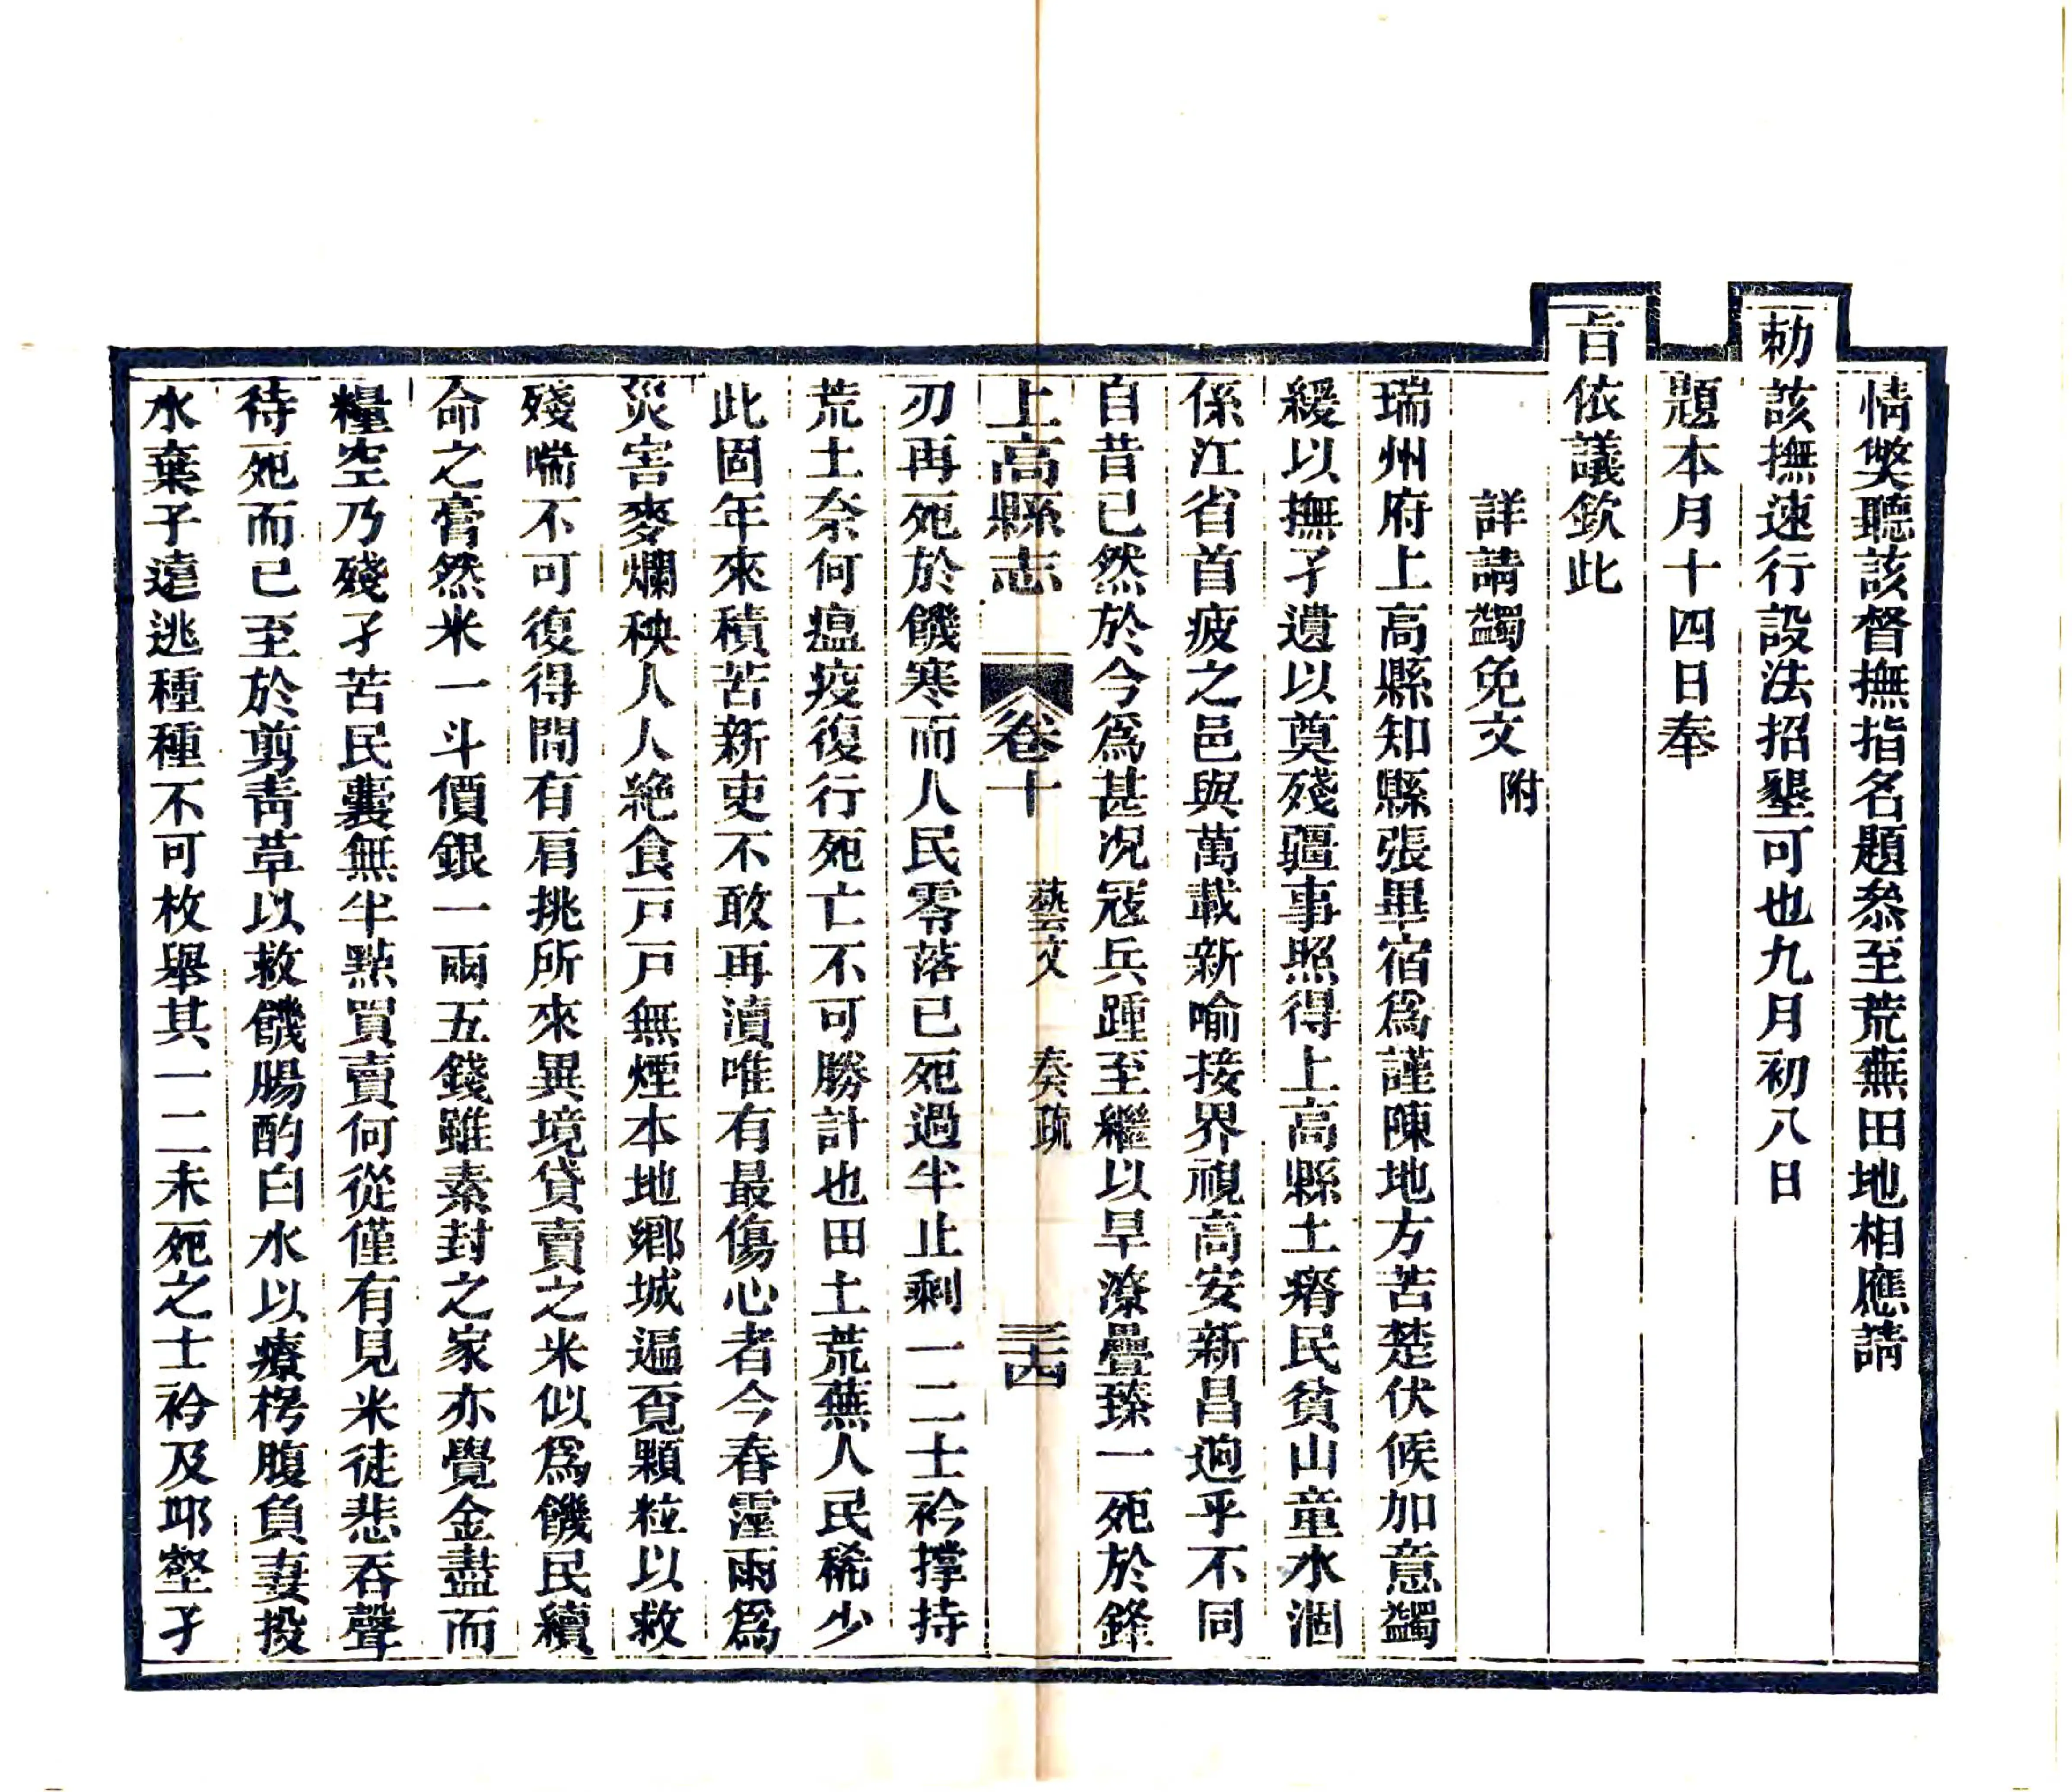 情獘聽該督撫指名題叅至荒蕪田地相應請
勅該撫速行設法招墾可也九月初八日
題本月十四日奉
旨依議欽此
詳請蠲免文附
瑞州府上高縣知縣張畢宿爲謹陳地方苦楚伏候加意蠲
緩以撫孑遺以奠殘疆事照得上高縣土瘠民貧山童水涸
係江省首疲之邑與萬載新喻接界視高安新昌逈乎不同
自昔已然於今爲甚况冦兵踵至繼以旱潦疊臻一死於鋒
上高縣志 卷十 藝文 奏疏 三十四
刃再死於饑寒而人民零落已死過半止剩一二士衿撐持
荒土奈何瘟疫復行死亡不可勝計也田土荒蕪人民稀少
此固年來積苦新吏不敢再瀆唯有最傷心者今春霪雨爲
災害麥爛秧人人絶食戸戸無煙本地鄉城遍覔顆粒以救
殘喘不可復得間有肩挑所來異境貸賣之米似爲饑民續
命之膏然米一斗價銀一兩五錢雖素封之家亦覺金盡而
糧空乃殘孑苦民囊無半點買賣何從僅有見米徒悲吞聲
待死而已至於剪靑草以救饑腸酌白水以療枵腹負妻投
水棄子遠逃種種不可枚舉其一二未死之士衿及耶壑孑